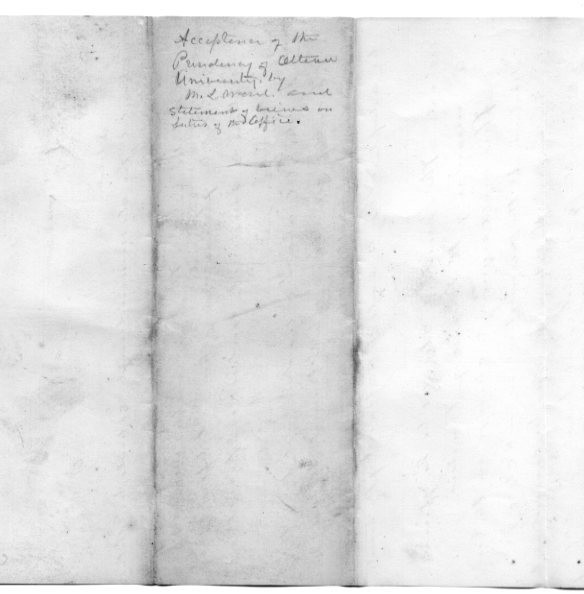 Acceptance of the
Presidency of Ottawa
University, by
M. L. Ward. and
Statement of views on
duties of said Office.